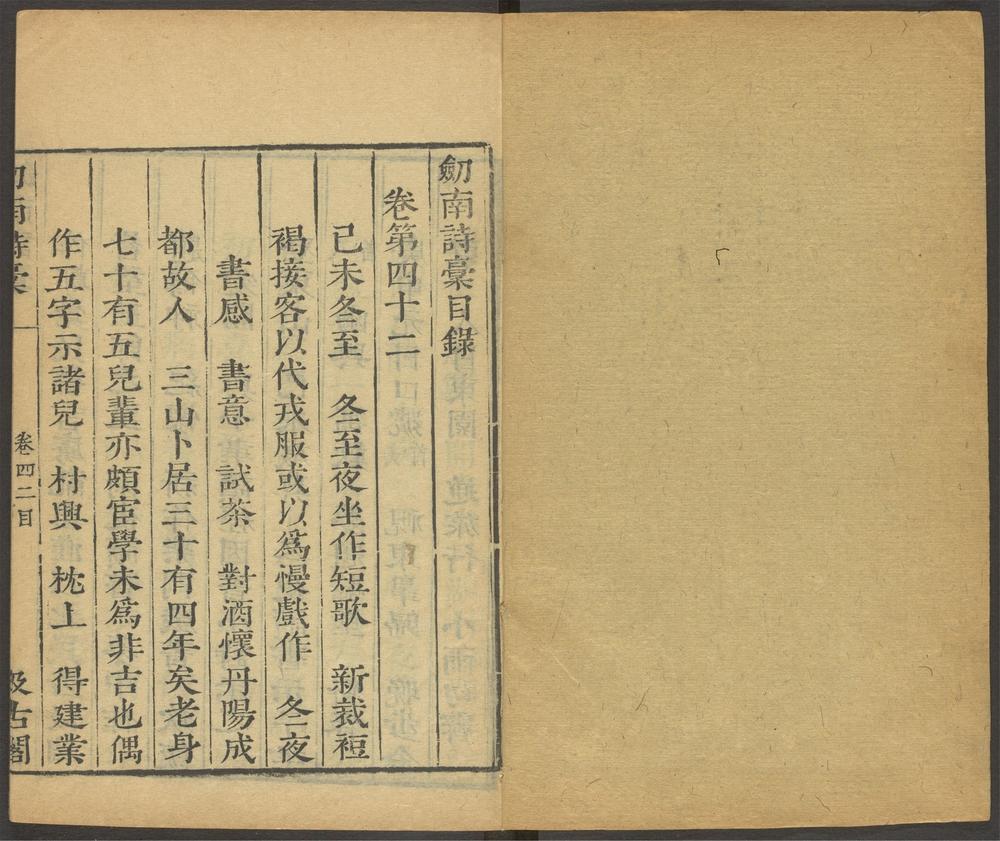 劒南詩稾目錄
卷第四十二
己未冬至　冬至夜坐作短歌　新裁短
褐接客以代戎服或以爲慢戲作　冬夜
書感　書意　試茶　對酒懷丹陽成
都故人　三山卜居三十有四年矣老身
七十有五兒輩亦頗宦學未爲非吉也偶
作五字示諸兒　村興　枕上　得建業
劒南詩稾
卷四二目
汲古閣